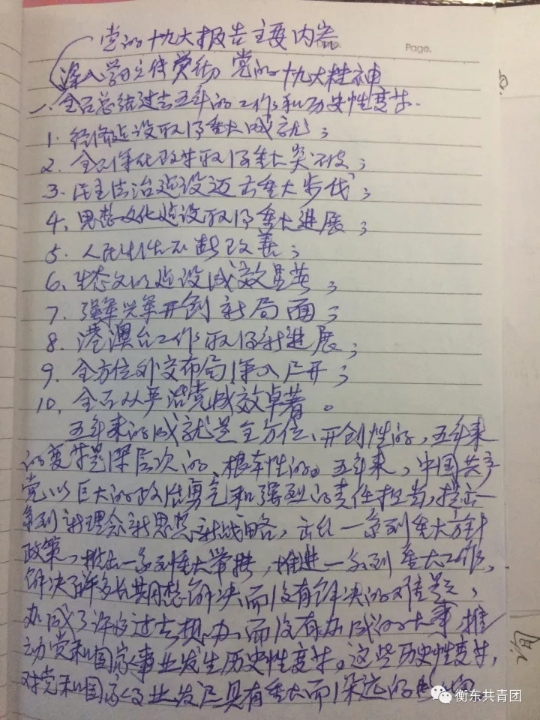 党的十九大报告主要内容
Page.
深入学习文件贯彻 党的十九大精神
一、全面总结过去五年的工作和历史性变革.
1. 经济建设取得重大成就;
2. 全面深化改革取得重大突破;
3. 民主法治建设迈出重大步伐;
4. 思想文化建设取得重大进展;
5. 人民生活不断改善;
6. 生态文明建设成效显著;
7. 强军兴军开创新局面;
8. 港澳台工作取得新进展;
9. 全方位外交布局深入展开;
10. 全面从严治党成效卓著。
五年来的成就是全方位、开创性的,五年来
的变革是深层次的、根本性的。五年来,中国共产
党以巨大的政治勇气和强烈的责任担当,提出一
系列新理念新思想新战略,出台一系列重大方针
政策,推出一系列重大举措,推进一系列重大工作,
解决了许多长期想解决而没有解决的难题,
办成了许多过去想办而没有办成的大事,推
动党和国家事业发生历史性变革。这些历史性变革,
对党和国家事业发展具有重大而深远的影响
衡东共青团